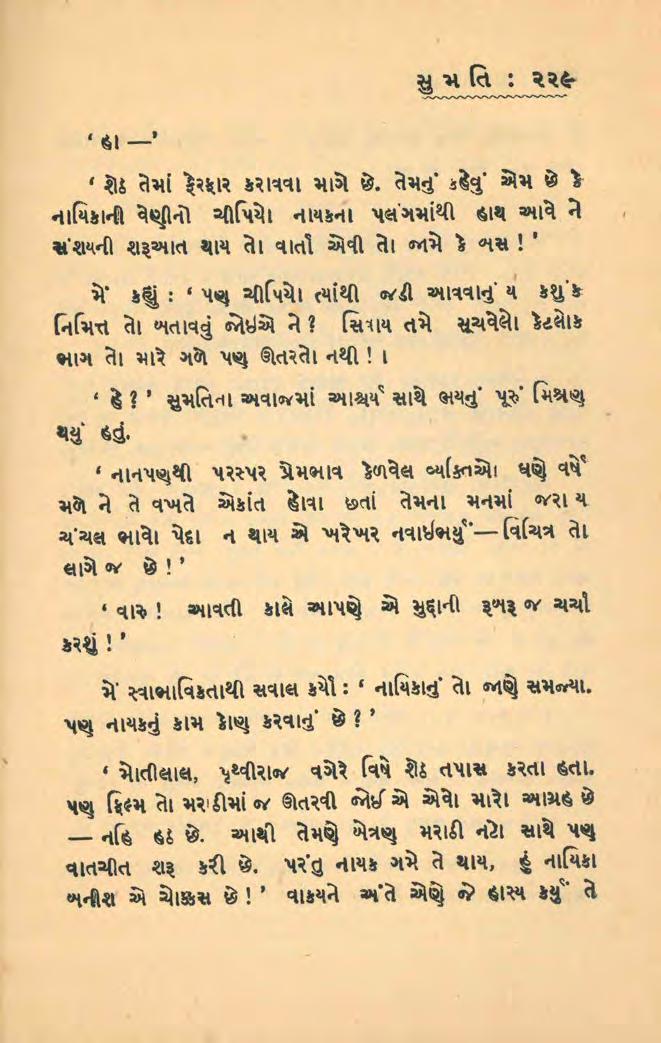 સુ મ તિ : ૨૨૯
‘ હા —’
‘ શેઠ તેમાં ફેરફાર કરાવવા માગે છે. તેમનું કહેવું એમ છે કે
નાયિકાની વેણીનો ચીપિયો નાયકના પલંગમાંથી હાથ આવે ને
સંશયની શરૂઆત થાય તો વાર્તા એવી તો જામે કે બસ ! ’
મેં કહ્યું : ‘ પણ ચીપિયો ત્યાંથી જડી આવવાનું ય કશુંક
નિમિત્ત તો બતાવવું જોઇએ ને ? સિવાય તમે સૂચવેલો કેટલોક
ભાગ તો મારે ગળે પણ ઊતરતો નથી ! ।
‘ હેં ? ’ સુમતિના અવાજમાં આશ્ચર્ય સાથે ભયનું પૂરું મિશ્રણ
થયું હતું.
‘ નાનપણથી પરસ્પર પ્રેમભાવ કેળવેલ વ્યક્તિઓ ઘણે વર્ષે
મળે ને તે વખતે એકાંત હોવા છતાં તેમના મનમાં જરા ય
ચંચલ ભાવો પેદા ન થાય એ ખરેખર નવાઇભર્યું—વિચિત્ર તો
લાગે જ છે ! ’
‘ વારુ ! આવતી કાલે આપણે એ મુદ્દાની રૂબરૂ જ ચર્ચા
કરશું ! ’
મેં સ્વાભાવિકતાથી સવાલ કર્યો : ‘ નાયિકાનું તો જાણે સમજ્યા.
પણ નાયકનું કામ કોણ કરવાનું છે ? ’
‘ મોતીલાલ, પૃથ્વીરાજ વગેરે વિષે શેઠ તપાસ કરતા હતા.
પણ ફિલ્મ તો મરાઠીમાં જ ઊતરવી જોઈએ એવો મારો આગ્રહ છે
— નહિ હઠ છે. આથી તેમણે બેત્રણ મરાઠી નટો સાથે પણ
વાતચીત શરૂ કરી છે. પરંતુ નાયક ગમે તે થાય, હું નાયિકા
બનીશ એ ચોક્કસ છે ! ’ વાક્યને અંતે એણે જે હાસ્ય કર્યું તે